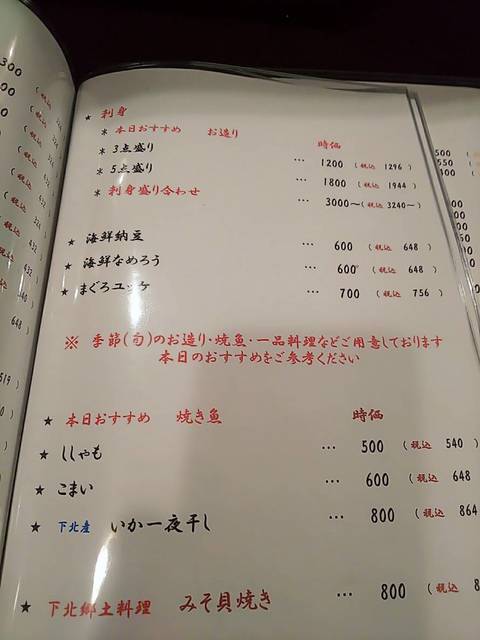 ★ 刺身
＊ 本日おすすめ お造り 時価
＊ 3点盛り … 1200 (税込 1296 )
＊ 5点盛り … 1800 (税込 1944 )
＊ 刺身盛り合わせ … 3000～(税込 3240～)
★ 海鮮納豆 … 600 (税込 648 )
★ 海鮮なめろう … 600 (税込 648 )
★ まぐろユッケ … 700 (税込 756 )
※ 季節(旬)のお造り・焼魚・一品料理などご用意しております
本日のおすすめをご参考ください
★ 本日おすすめ 焼き魚 時価
★ ししゃも … 500 (税込 540 )
★ こまい … 600 (税込 648
★ 下北産 いか一夜干し … 800 (税込 864
★ 下北郷土料理 みそ貝焼き … 800 (税込